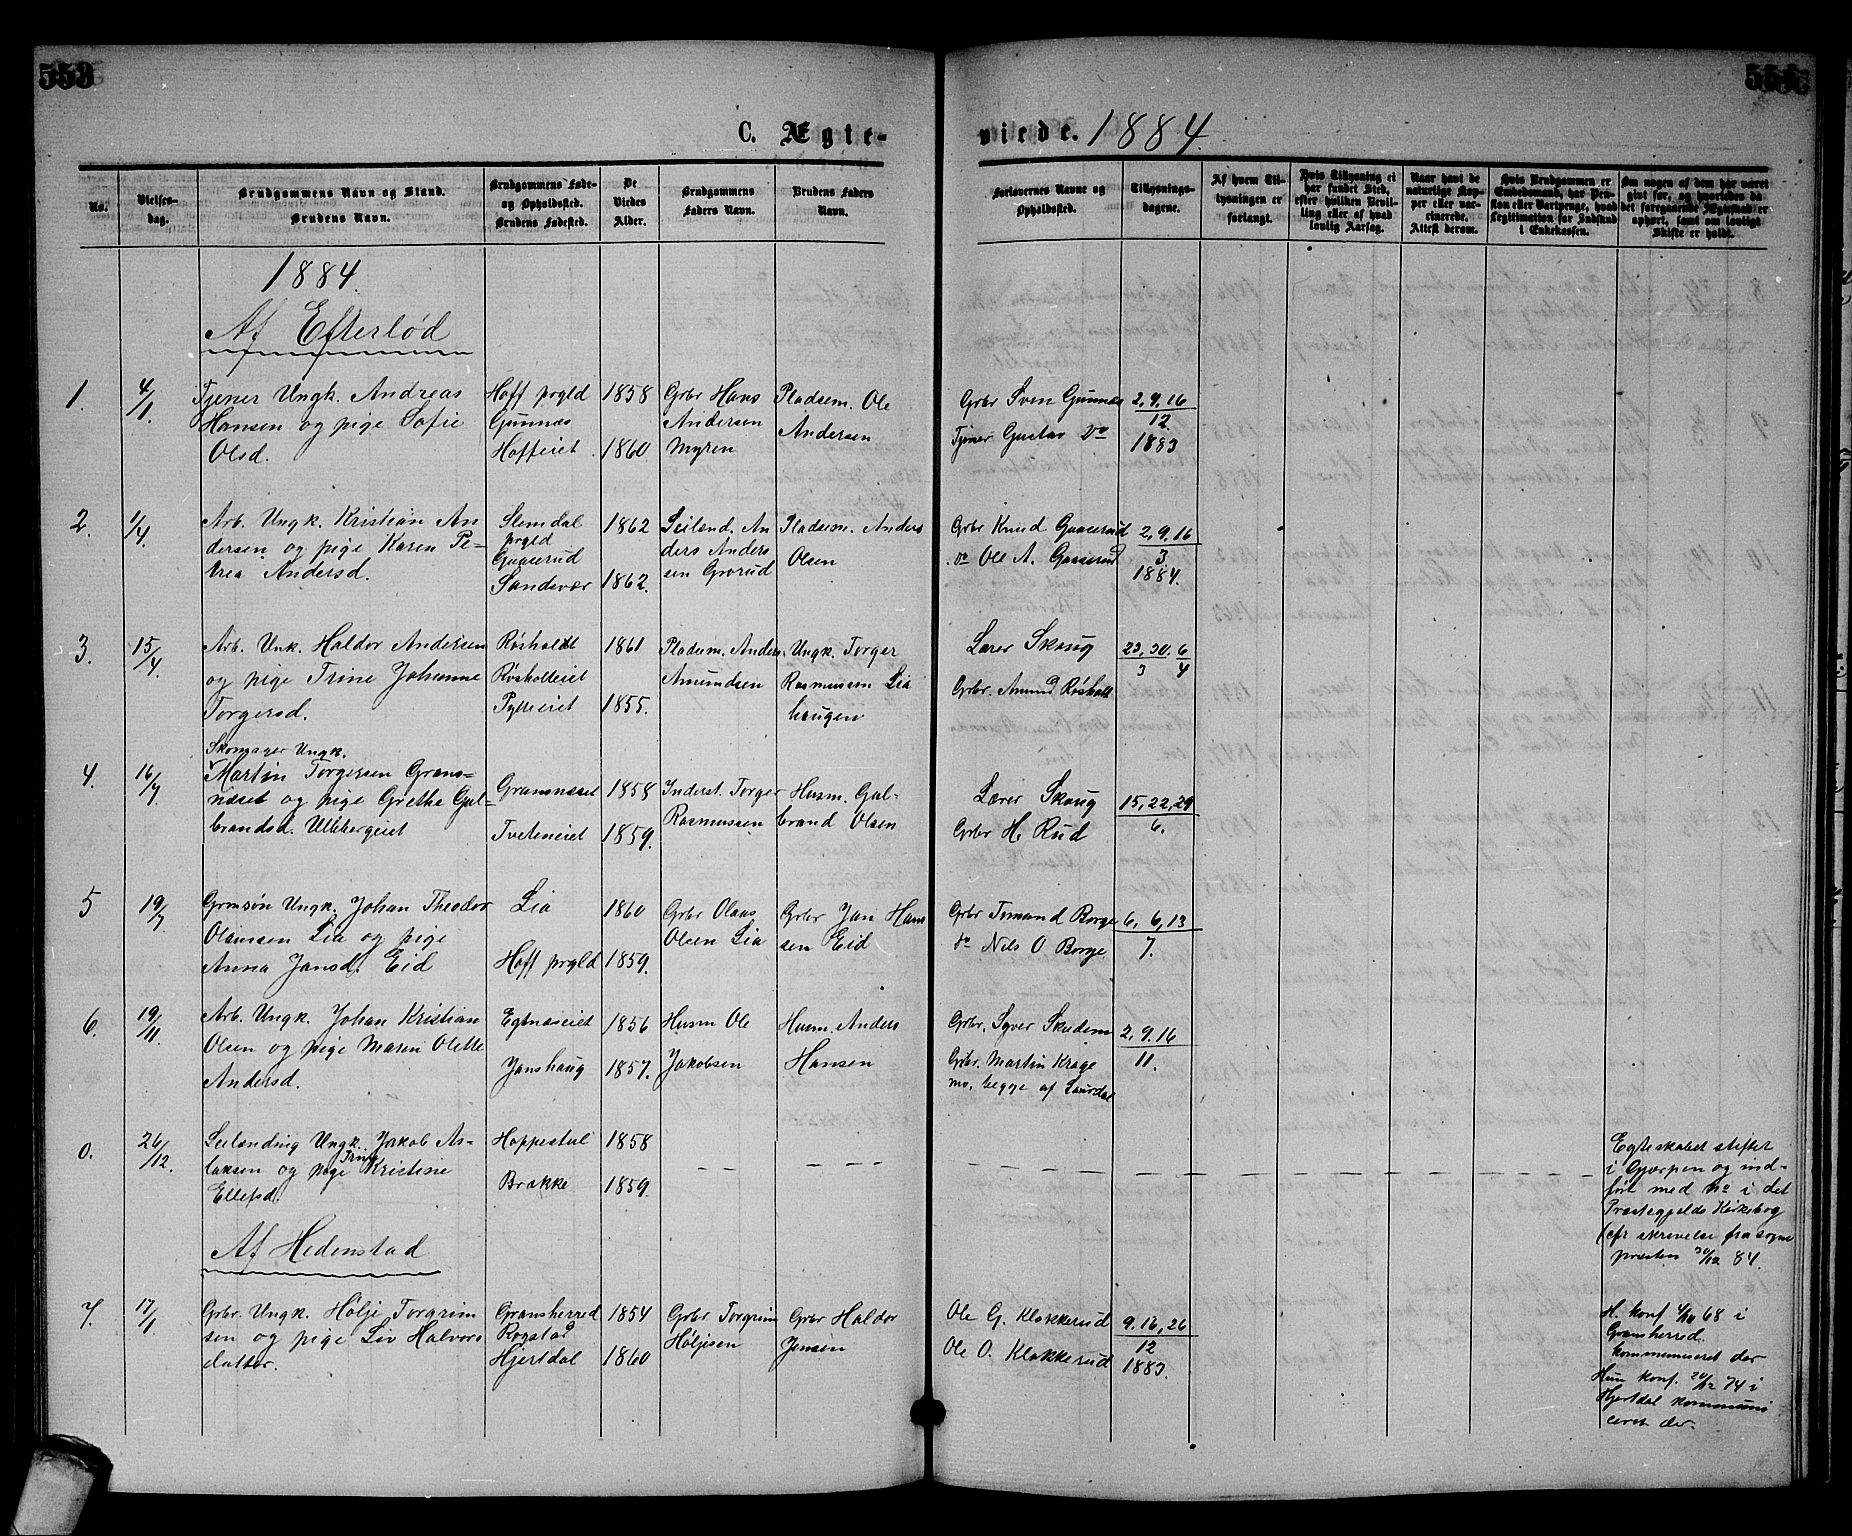 553
C. Ægte-
viede. 1884.
No.
Vielses-
dag.
Brudgommens Navn og Stand.
Brudens Navn.
Brudgommens Føde-
og Opholdssted.
Brudens Fødested.
De
Viedes
Alder.
Brudgommens
Faders Navn.
Brudens Faders
Navn.
Forlovernes Navne og
Opholdssted.
Tillysnings-
dagene.
Af hvem Til-
lysningen er
forlangt.
Hvis Tillysning ei
har fundet Sted,
efter hvilken Bevil-
ling eller af hvad
lovlig Aarsag.
Naar havt de
naturlige Kop-
per eller vac-
cinerede.
Attest derom.
Hvis Brudgommen er
Embedsmand, har Pen-
sion eller Vartpenge, hvad
Legitimation for Indskud
i Enkekassen.
Om nogen af dem har været
gift før, og hvorledes da
det foregaaende Ægteskab er
ophørt, samt om lovligt
Skifte er holdt.
1884.
Af Efterlød
1. 4/1. Tjener Ungk. Andreas
Hansen og pige Sofie
Olsd.
Hoff prgld
Gunnæs
Hoffeiet
1858
1860
Grbr Hans
Andersen
Myren
Pladsem. Ole
Andersen
Grbr Sven Gunnæs
Tjener Gustav do
2, 9. 16
12
1883
2. 1/4. Arb. Ungk. Kristian An
dersen og pige Karen Pe-
trea Andersd.
Slemdal
prgld
Gaaserud
Sandsvær
1862
1862.
Seilend. An
ders Anders
sen Grorud
Pladsm. Anders
Olsen
Grbr Knud Gaaserud
do Ole A. Gaaserud
2, 9. 16
3
1884.
3. 15/4. Arb. Unk. Haldor Andersen
og pige Trine Johanne
Torgersd.
Røsholdt
Røsholteiet
Pytteeiet
1861
1855.
Pladsm. Anders
Amundsen
Ungk. Torger
Rasmussen Lia
haugen
Lærer Skaug
Grbr. Amund Røsholt
23, 30. 6
3 4
4. 16/7. Skomager Ungk.
Martin Torgersen Grans-
næset og pige Grethe Gul-
brandsd. Ullebergeiet
Gransnæset
Tveteneiet
1858
1859.
Inderst. Torger
Rasmussen
Husm. Gul-
brand Olsen
Lærer Skaug
Grbr H. Rud
15, 22, 29
6.
5 19/7 Grmsøn Ungk. Johan Theodor
Olaussen Lia og pige
Anna Jansd. Eid
Lia
Hoff prgld
1860
1859.
Grbr Olaus
Olsen Lia
Grbr Jan Han
sen Eid
Grbr Tomund Borge
do Nils O Borge
6, 6, 13
7.
6. 19/11. Arb. Ungk. Johan Kristian
Olsen og pige Maren Olette
Andersd.
Egtnæseiet
Janshaug
1856
1857.
Husm Ole
Jakobsen
Husm. Anders
Hansen
Grbr. Syver Skudem
Grbr. Martin Krage
mo, begge af Laurdal
2, 9. 16
11.
0. 26/12. Seilending Ungk. Jakob As-
laksen og pige Trine Kristine
Ellefsd.
Hoppestul
Brække
1858
1859.
Egteskabet stiftet
i Gjerpen og ind-
ført med No i det
Præstegjelds Kirkebog
(cfr skrivelse fra sogne
præsten 30/12 84.
Af Hedenstad
7. 17/1 Grbr. Ungk. Hølje Torgrim
sen og pige Liv Halvors
datter.
Gransherred
Rogstad
Hjertdal
1854
1860
Grbr Torgrim
Høljesen
Grbr Haldor
Jensen
Ole G. Klokkerud
Ole O. Klokkerud
9. 16, 26
12
1883.
H. konf 4/10 68 i
Gransherred.
kommuniseret der
Hun konf. 20/12 74 i
Hjertdal kommuni
ceret der.